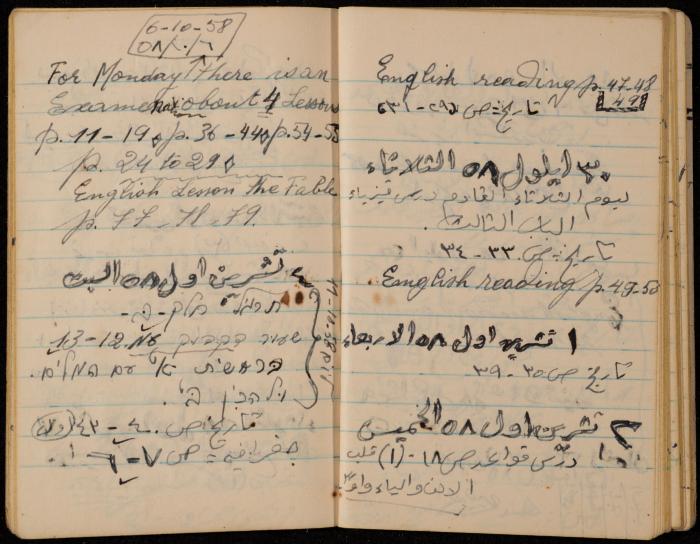 6-10-58
For Monday There is an
Examenation about 4 Lessons
p. 11 - 19, p. 36 - 44, p. 54 - 55
p. 24 to 29,
English Lesson The Fable
p. 77 - 78 - 79.
٤ تشرين اول ٥٨ السبت
תרגיל חלק - ב -
שעור בדקדוק עמ. 12 - 13
בראשית א' עם המלים.
تاريخ ص. ٤٠ - ٤٣
جغرافية = ص ٧ - ١٠.
English reading p. 47-48
49
تاريخ = ص ٢٩ - ٣١
٣٠ ايلول ٥٨ الثلاثاء
ليوم الثلاثاء القادم درس فيزياء
الباب الثالث.
تاريخ = ص ٣٣ - ٣٤
English reading p. 49-50
١ تشرين اول ٥٨ الاربعاء
تاريخ ص ٣٥ - ٣٩
٢ تشرين اول ٥٨ الخميس
درس قواعد ص ١٨ - (١) قلب
الالف والياء واو